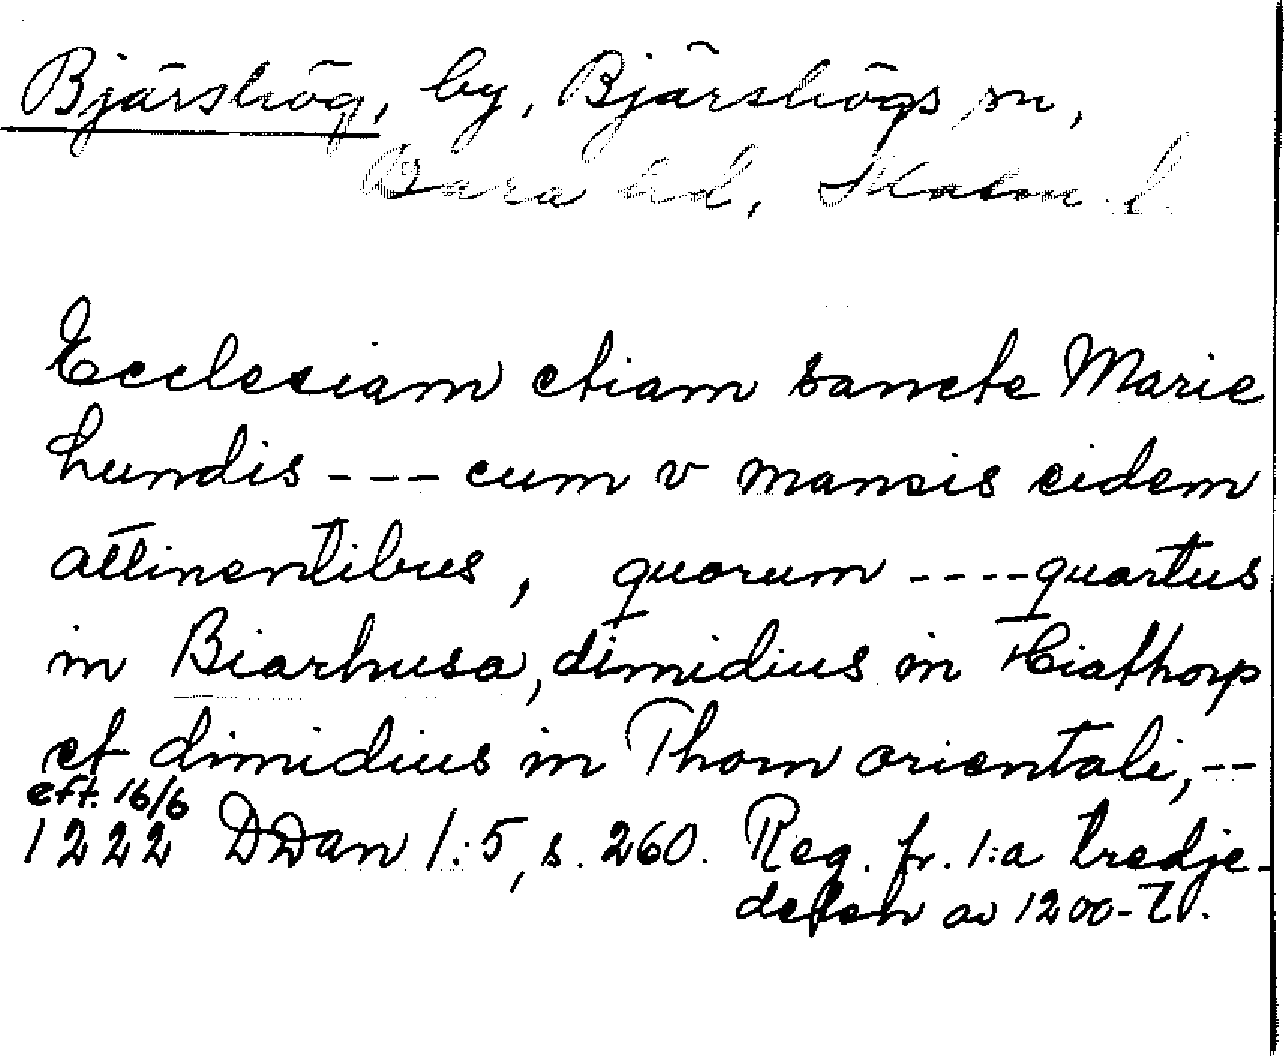 Bjärshög, by, Bjärshögs sn,
Bara hd, Malm. l.
Ecclesiam etiam sancte Marie
Lundis --- cum v mansis eidem
attinentibus, quorum ---- quartus
in Biarhusa, dimidius in Hiathorp
et dimidius in Thorn orientali, --
eft. 16/6
1222 DDan 1:5, s. 260. Reg. fr. 1:a tredje-
delen av 1200-t.